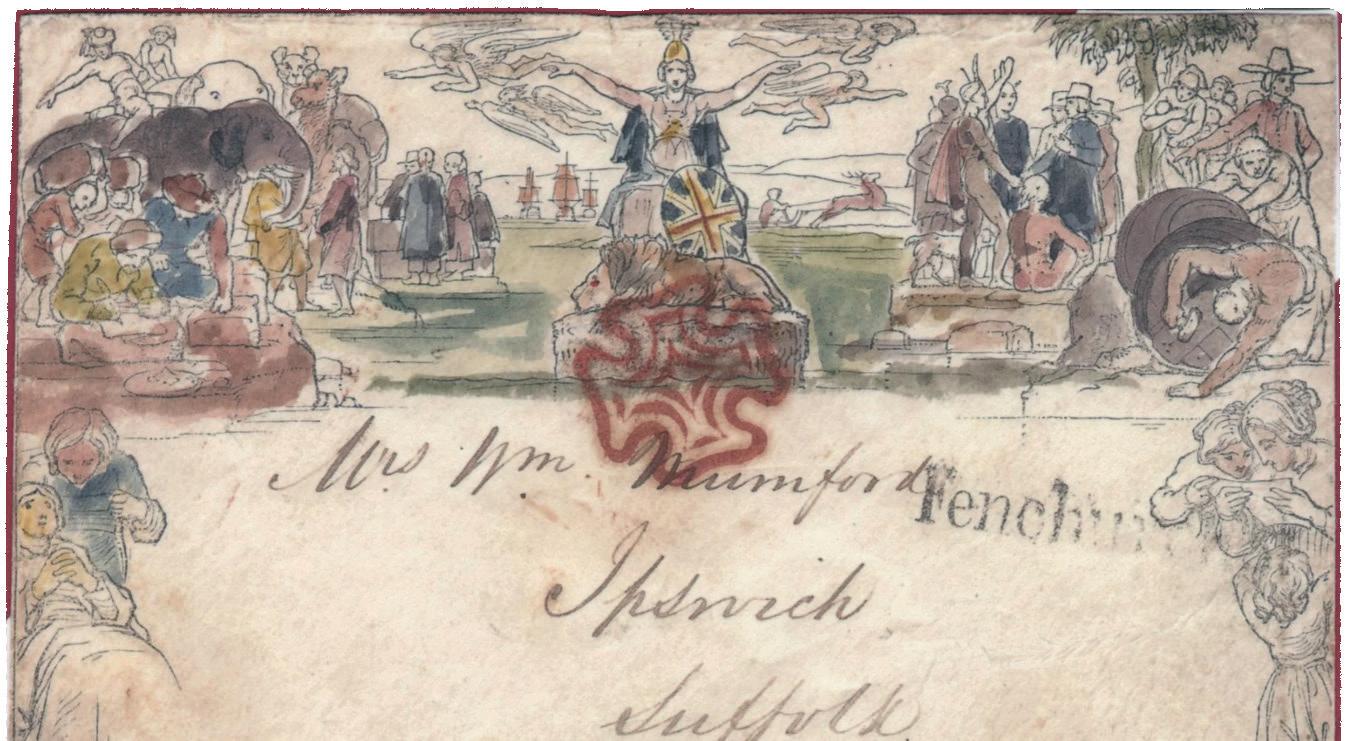 Mrs Wm. Mumford
Fenchu
Ipswich
Suffolk